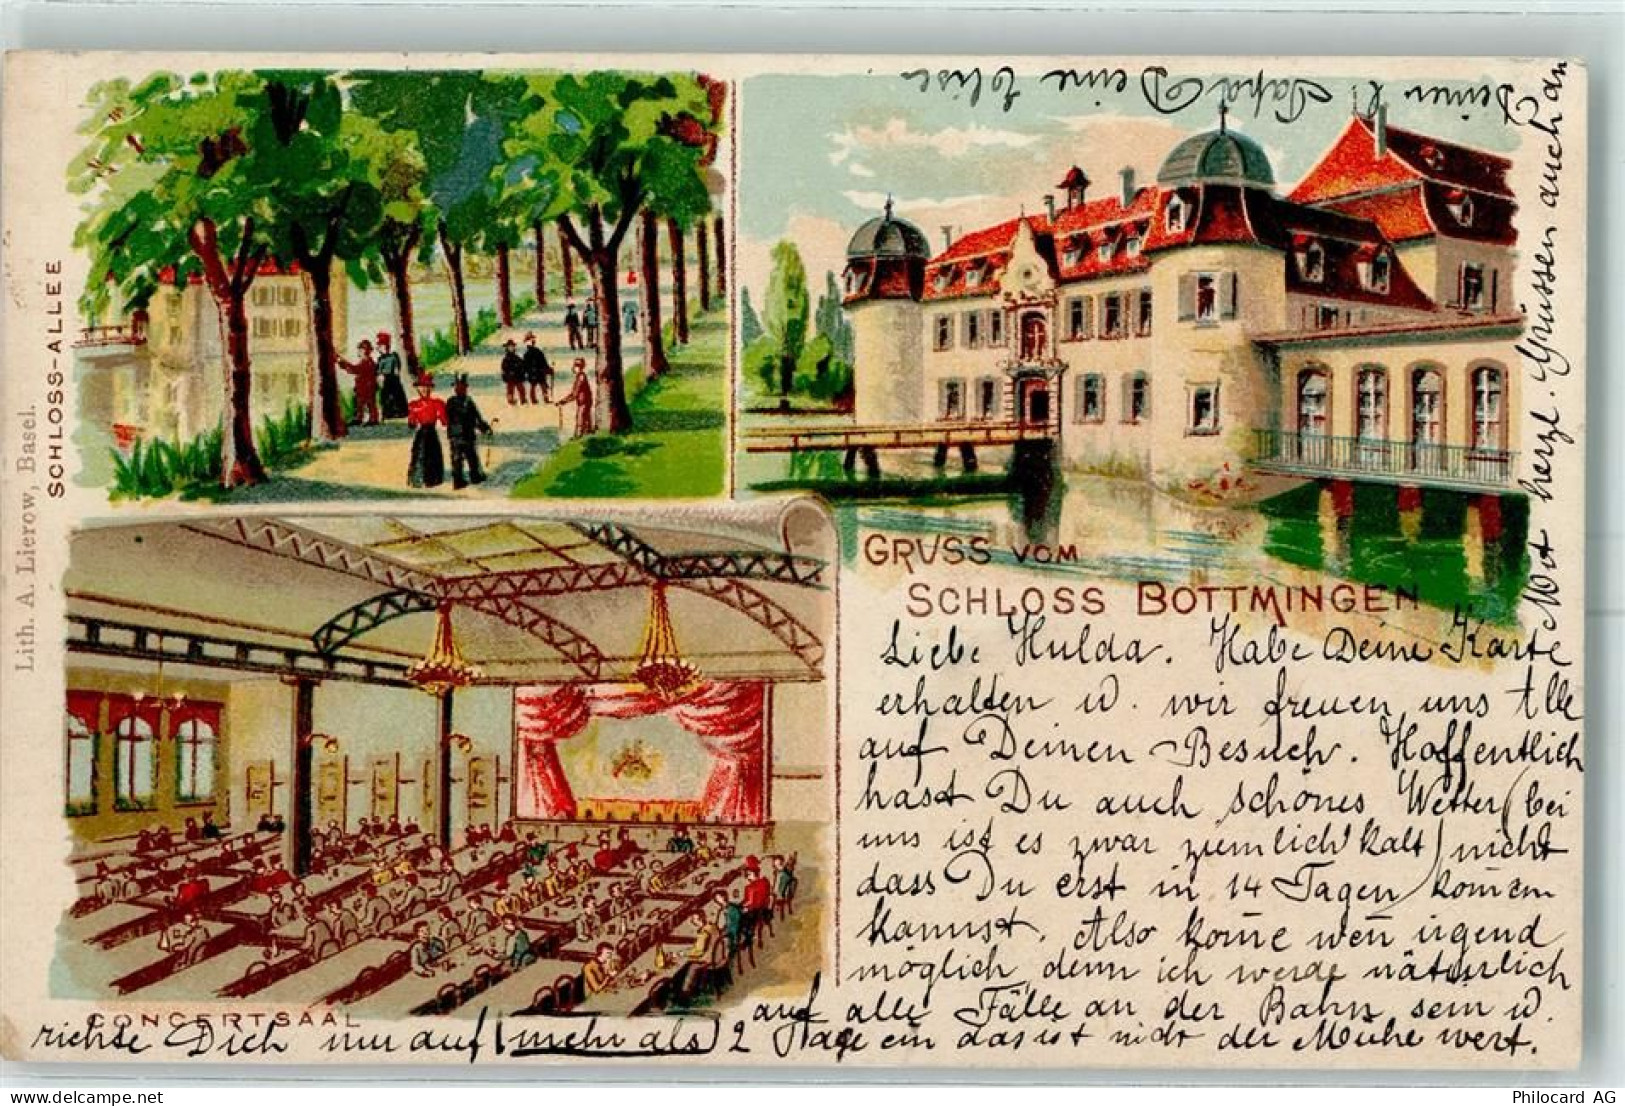 SCHLOSS-ALLEE
Lith. A. Lierow, Basel.
GRUSS VOM
SCHLOSS BOTTMINGEN
CONCERTSAAL
Liebe Hulda. Habe Deine Karte
erhalten u. wir freuen uns Alle
auf Deinen Besuch. Hoffentlich
hast Du auch schönes Wetter (bei
uns ist es zwar ziemlich kalt) nicht
dass Du erst in 14 Tagen kom̅en
kannst. Also kom̅e wen̅ irgend
möglich, denn ich werde natürlich
auf alle Fälle an der Bahn sein u.
richte Dich nur auf mehr als 2 Tage ein das ist nicht der Mühe wert.
Mit herzl. Grüssen auch an
Deinen l. Papa Deine Elise.
Philocard AG